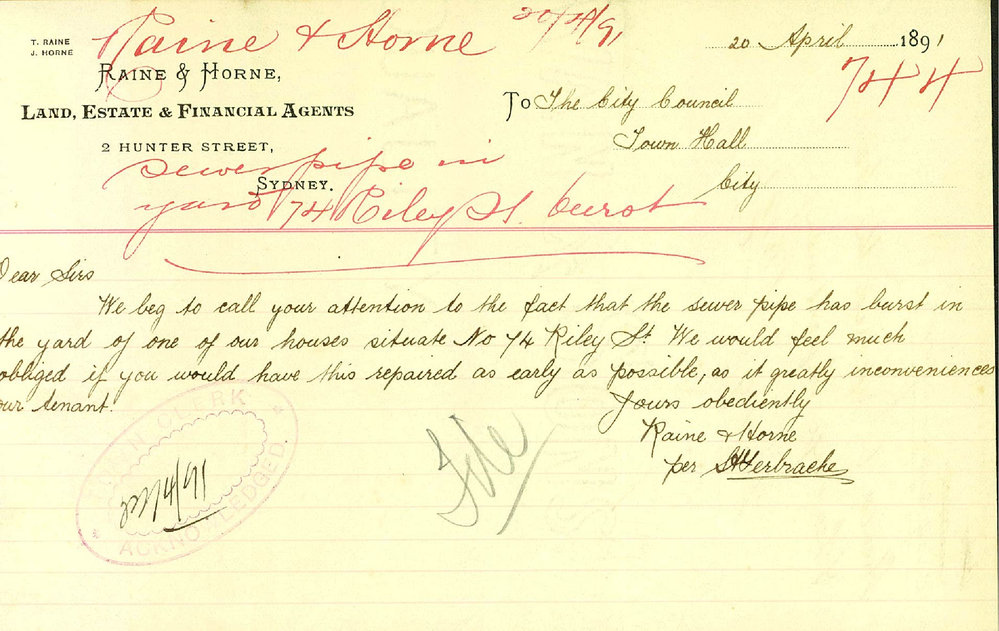 T. RAINE
J. HORNE
Raine & Horne
20/4/91
20 April 1891
744
RAINE & HORNE,
LAND, ESTATE & FINANCIAL AGENTS
2 HUNTER STREET,
SYDNEY.
To The City Council
Town Hall
City
sewer pipe in
yard 74 Riley St. burst
Dear Sirs
We beg to call your attention to the fact that the sewer pipe has burst in
the yard of one of our houses situate No 74 Riley St. We would feel much
obliged if you would have this repaired as early as possible, as it greatly inconveniences
our tenant.
Yours obediently
Raine & Horne
per
TOWN CLERK
ACKNOWLEDGED
File